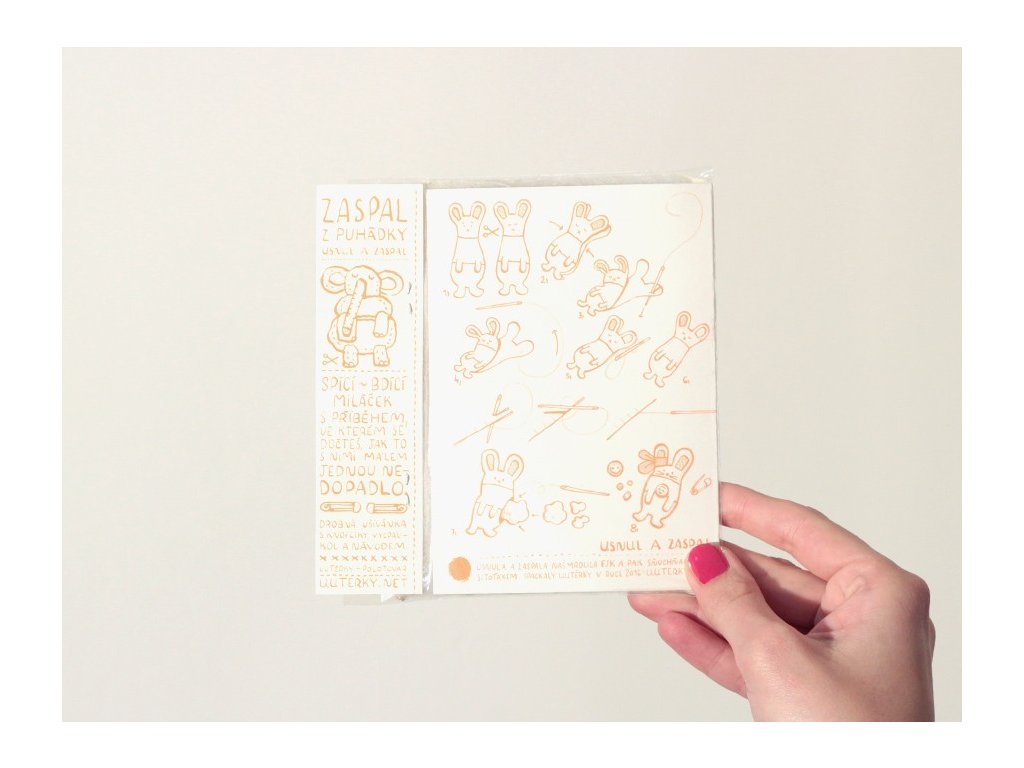 ZASPAL
Z PUHÁDKY
USNUL A ZASPAL
SPÍCÍ ~ BDÍCÍ
MILÁČEK
S PŘÍBĚHEM,
VE KTERÉM SE
DOČTEŠ, JAK TO
S NÍMI MÁLEM
JEDNOU NE-
DOPADLO.
DROBNÁ UŠÍVÁNKA
S KNOFLÍKY, VYCPÁV-
KOU A NÁVODEM.
LULTERKY - POLOTOVAR
LULTERKY.NET
1.
2.
3.
4.
5.
6.
7.
8.
USNUL A ZASPAL
USNULA A ZASPALA NAŠMODLILA EJK A PAK
V ROCE 2016